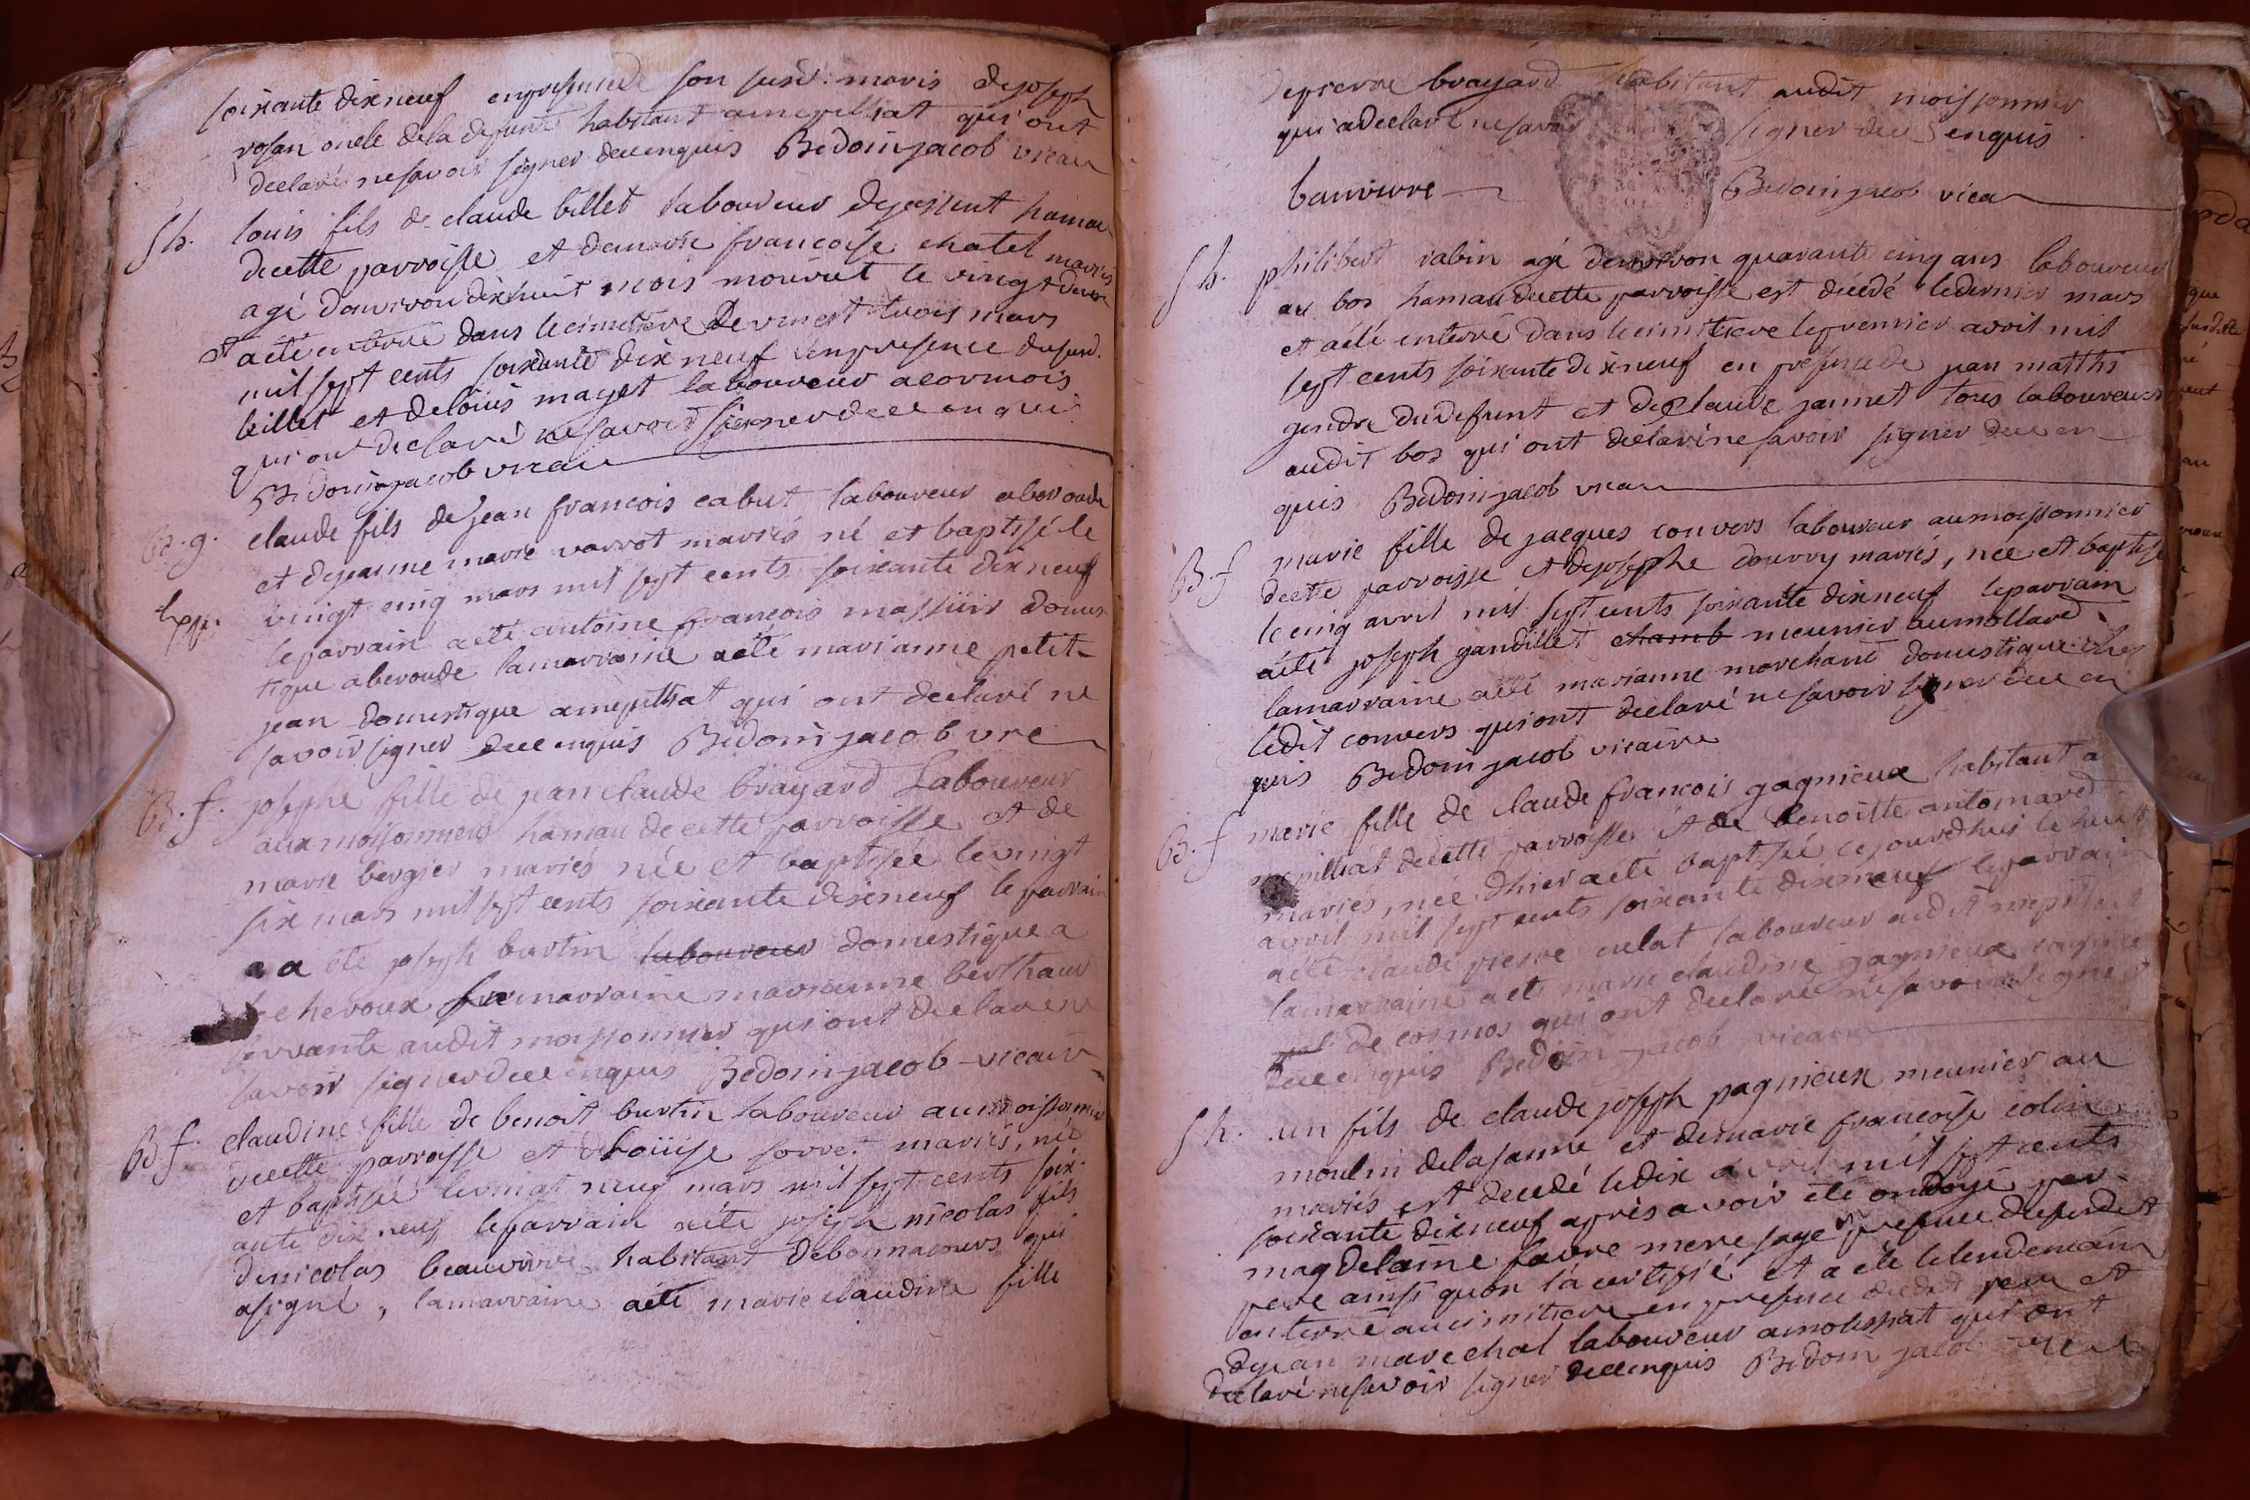 soixante dix neuf en presence de son susd. maris de joseph
rosan oncle de la defunte habitant a mepilliat qui ont
declaré ne savoir signer de ce enquis Bedoin jacob vicair
Sh. louis fils de claude billet laboureur de hamau
de cette parroisse et de marie francoise chatel mariés
agé d'environ dix huit mois mourut le vingt deux
et a été enterré dans le cimetiere le vinct trois mars
mil sept cents soixante dix neuf en presence du susd.
billet et de loüis mayet laboureur a cormois
qui ont declaré ne savoir signer de ce enquis
Bedoin jacob vicair
B. g. claude fils de jean francois cabut laboureur a beroude
et de jeanne marie varrot mariés né et baptisé le
vingt cinq mars mil sept cents soixante dix neuf
le parrain a été antoine françois massüir domes
tique a beroude la marraine a été marianne petit-
jean domestique a mepilliat qui ont declaré ne
savoir signer de ce enquis Bedoin jacob vre
B. f. josephe fille de jean claude brayard Laboureur
aux moissonniers hamau de cette parroisse et de
marie bergier mariés née et baptisée le vingt
six mars mil sept cents soixante dix neuf le parrain
a été joseph burtin laboureur domestique a
chevroux la marraine marianne berthaud
servante audit moissonnier qui ont declaré ne
savoir signer de ce enquis Bedoin jacob vicair
B. f. claudine fille de benoit burtin laboureur au moissonnier
de cette parroisse et de Loüise sorret mariés, née
et baptisée le vingt neuf mars mil sept cents soix-
ante dix neuf le parrain a été joseph nicolas fils
de nicolas beauvivre habitant de bonnacours qui
a signé, la marraine a été marie claudine fille
de pierre brayard habitant audit moissonnier
qui a declaré ne savoir signer de ce enquis
bauvivre Bedoin jacob vicair
Sh. philibert rabin agé d'environ quarante cinq ans laboureur
au bos hamau de cette parroisse est décédé le dernier mars
et a été enterré dans le cimitiere le premier avril mil
sept cents soixante dix neuf en presence de jean matthi
gendre du defunt et de Claude jannet tous laboureurs
audit bos qui ont déclaré ne savoir signer de ce en
quis Bedoin jacob vicair
B. f marie fille de jacques convers laboureur au moissonnier
de cette parroisse et de josephe dourry mariés, née et baptisé
le cinq avril mil sept cents soixante dix neuf le parrain
a été joseph gandillet chamb meunier au mollard
la marraine a été marianne marchand domestique chez
ledit convers qui ont déclaré ne savoir signer de ce en
quis Bedoin jacob vicaire
B. f marie fille de claude francois gagnieux habitant a
mepilliat de cette parroisse et de benoitte antomard
mariés, née d'hier a été baptisée ce jourd'hui le huit
avril mil sept cents soixante dix neuf le parrain
a été claude pierre culat laboureur audit mepilliat
la marraine a été marie claudine gagnieux
de cormos qui ont declaré ne savoir signer
de ce enquis Bedoin jacob vicair
Sh. un fils de claude joseph pagnieux meunier au
moulin de la sanne et de marie francoise colin
mariés est decédé le dix avril mil sept cents
soixante dix neuf après avoir été ondoyé par
magdelaine favre mere sage en presence du susdit
pere ainsi qu'on l'a certifié et a été le lendemain
enterré au cimitiere en presence dudit pere et
de jean marechal laboureur a molissiat qui ont
declaré ne savoir signer de ce enquis Bedoin jacob vicair